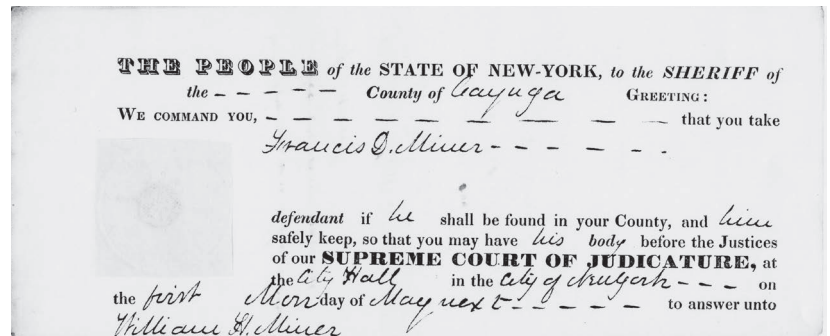 THE PEOPLE of the STATE OF NEW-YORK, to the SHERIFF of
the - - - - - County of Cayuga GREETING:
WE COMMAND YOU, - - - - - - - - - that you take
Francis D. Miner - - - - - -
defendant if he shall be found in your County, and him
safely keep, so that you may have his body before the Justices
of our SUPREME COURT OF JUDICATURE, at
the City Hall in the City of New York - - - on
the first Monday of May next - - - - - to answer unto
William H. Miner